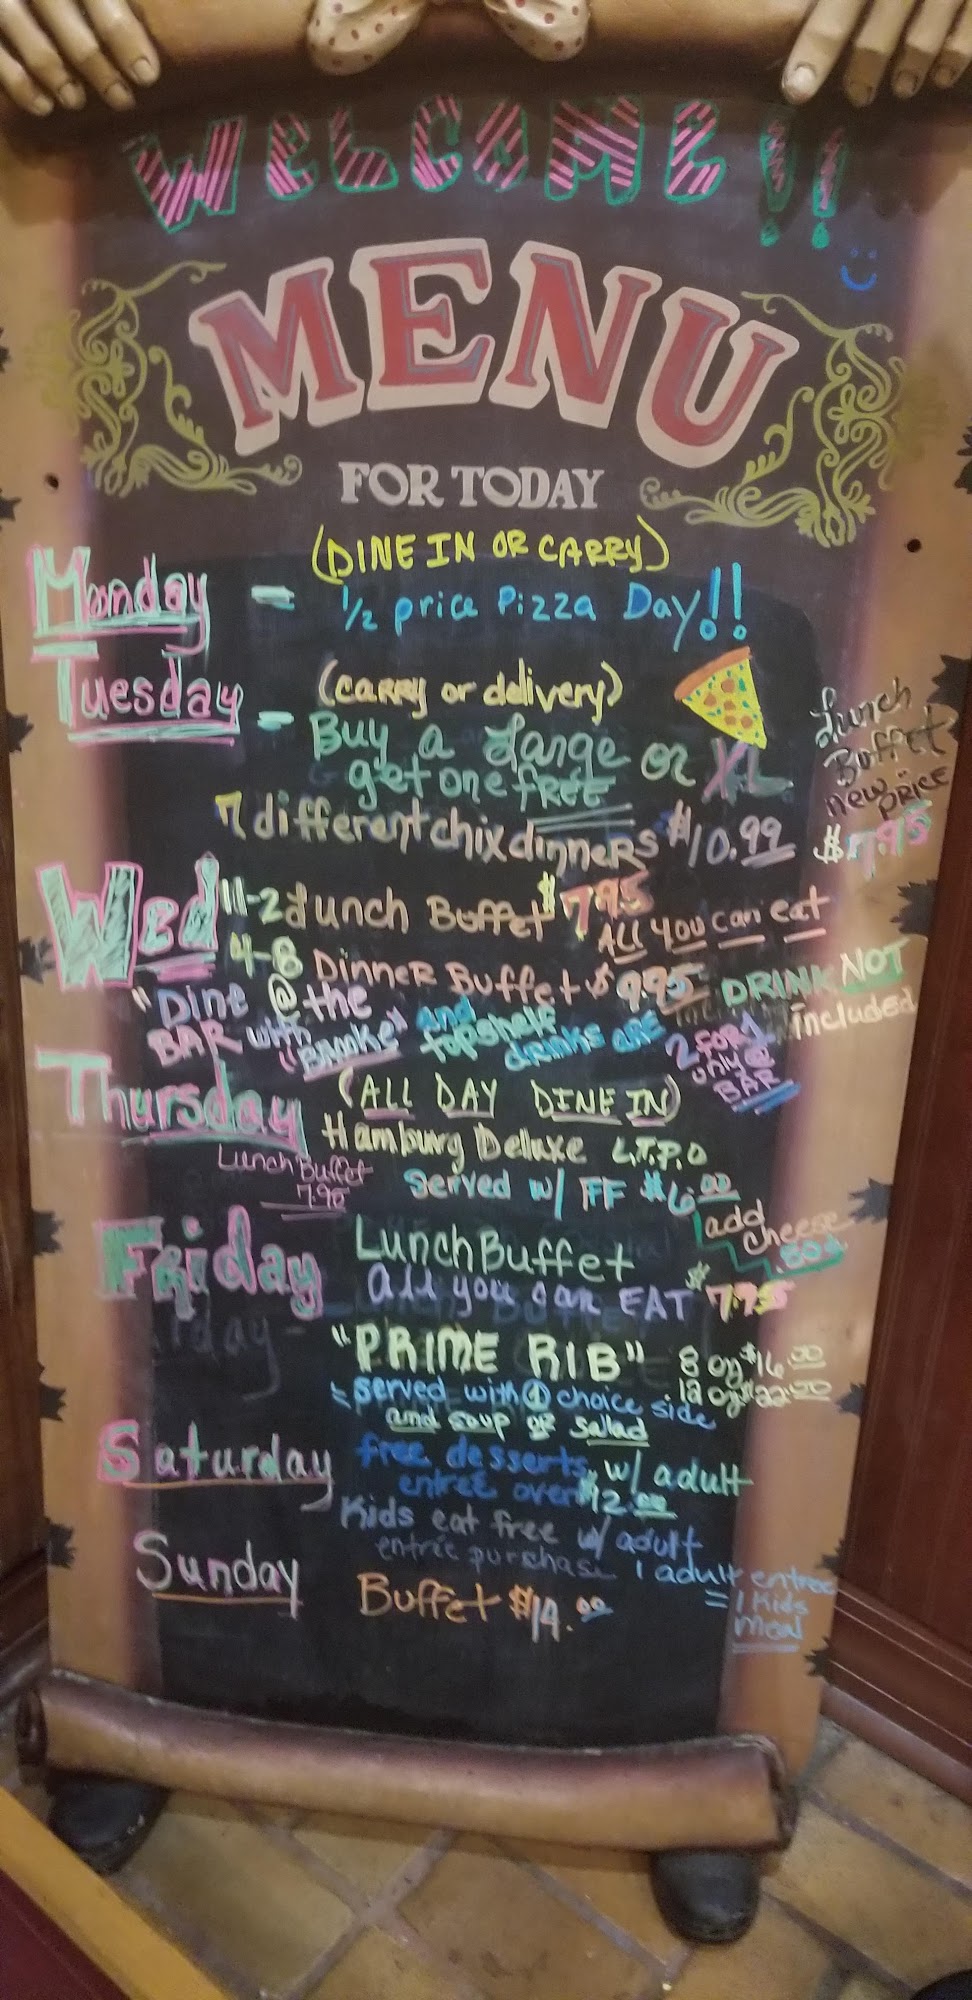 WELCOME!!
MENU
FOR TODAY
(DINE IN OR CARRY)
Monday - 1/2 price Pizza Day!!
Tuesday - (CARRY or delivery)
Buy a Large or XL
get one FREE
7 different chix dinners $10.99
Lunch
Buffet
new PRICE
$7.95
Wed 11-2 Lunch Buffet $7.95
All you can eat
4-8 Dinner Buffet $9.95 DRINK NOT
included
"Dine @ the
BAR with
"BROOKE" and
topshelf
drinks ARE
2 FOR 1
only @
BAR
Thursday (ALL DAY DINE IN)
Hamburg Delluxe L.T.P.O
Served w/ FF $6.00
Lunch Buffet
7.95
add
cheese
.50¢
Friday Lunch Buffet
all you can EAT $7.95
"PRIME RIB" 8 oz $16.00
12 oz $22.00
served with ① choice side
and soup or salad
Saturday free desserts w/ adult
entreé over $12.00
Kids eat free w/ adult
entreé purchase 1 adult entree
= 1 Kids
meal
Sunday Buffet $14.00